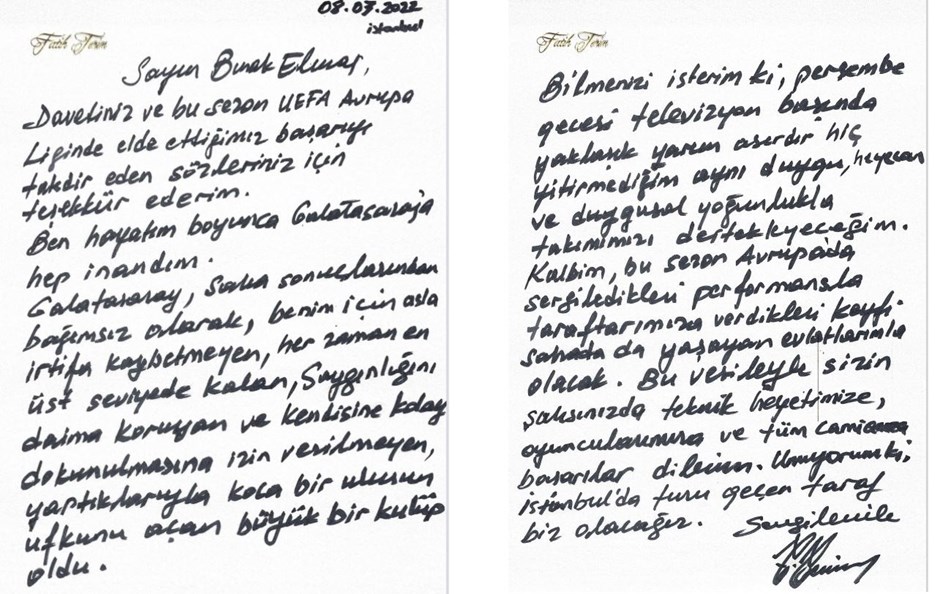 08.03.2022
istanbul
Fatih Terim
Sayın Burak Elmas,
Davetiniz ve bu sezon UEFA Avrupa
Liginde elde ettiğimiz başarıyı
takdir eden sözleriniz için
teşekkür ederim.
Ben hayatım boyunca Galatasaraya
hep inandım.
Galatasaray, saha sonuçlarından
bağımsız olarak, benim için asla
irtifa kaybetmeyen, her zaman en
üst seviyede kalan, Saygınlığını
daima koruyan ve kendisine kolay
dokunulmasına izin verilmeyen,
yaptıklarıyla koca bir ulusun
ufkunu açan büyük bir kulüp
oldu.
Fatih Terim
Bilmenizi isterim ki, perşembe
gecesi televizyon başında
yaklaşık yarım asırdır hiç
yitirmediğim aynı duygu, heyecan
ve duygusal yoğunlukla
takımımızı destekleyeceğim.
Kalbim, bu sezon Avrupada
sergiledikleri performansla
taraftarımıza verdikleri keyfi
sahada da yaşayan evlatlarımla
olacak. Bu vesileyle sizin
şahsınızda teknik heyetimize,
oyuncularımıza ve tüm camiamıza
başarılar dilerim. Umuyorum ki;
istanbul'da turu geçen taraf
biz olacağız.
Sevgilerimle